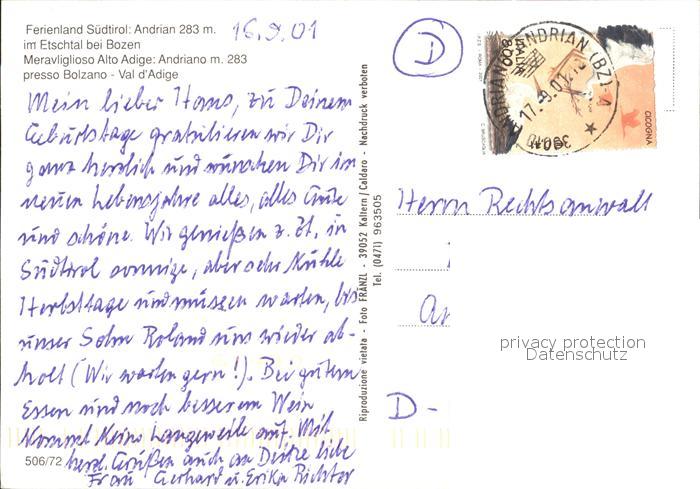 Ferienland Südtirol: Andrian 283 m.
im Etschtal bei Bozen
Meraviglioso Alto Adige: Andriano m. 283
presso Bolzano - Val d'Adige
16.9.01
Mein lieber Hans, zu Deinem
Geburtstage gratulieren wir Dir
ganz herzlich und wünschen Dir im
neuen Lebensjahre alles, alles Gute
und schöne. Wir genießen z. Zt. in
Südtirol sonnige, aber sehr kühle
Herbsttage und müssen warten, bis
unser Sohn Roland uns wieder ab-
holt (Wir warten gern!). Bei gutem
Essen und noch besserem Wein
kommt keine Langeweile auf. Mit
herzl. Grüßen auch an Deine liebe
Frau Gerhard u. Erika Richter
506/72
Riproduzione vietata - Foto FRANZL - 39052 Kaltern/Caldaro - Nachdruck verboten
Tel. (0471) 963505
D
ITALIA
800
CICOGNA
ANDRIANO ANDRIAN (BZ) - A
17.9.01
Herrn Rechtsanwalt
An
D -
privacy protection
Datenschutz